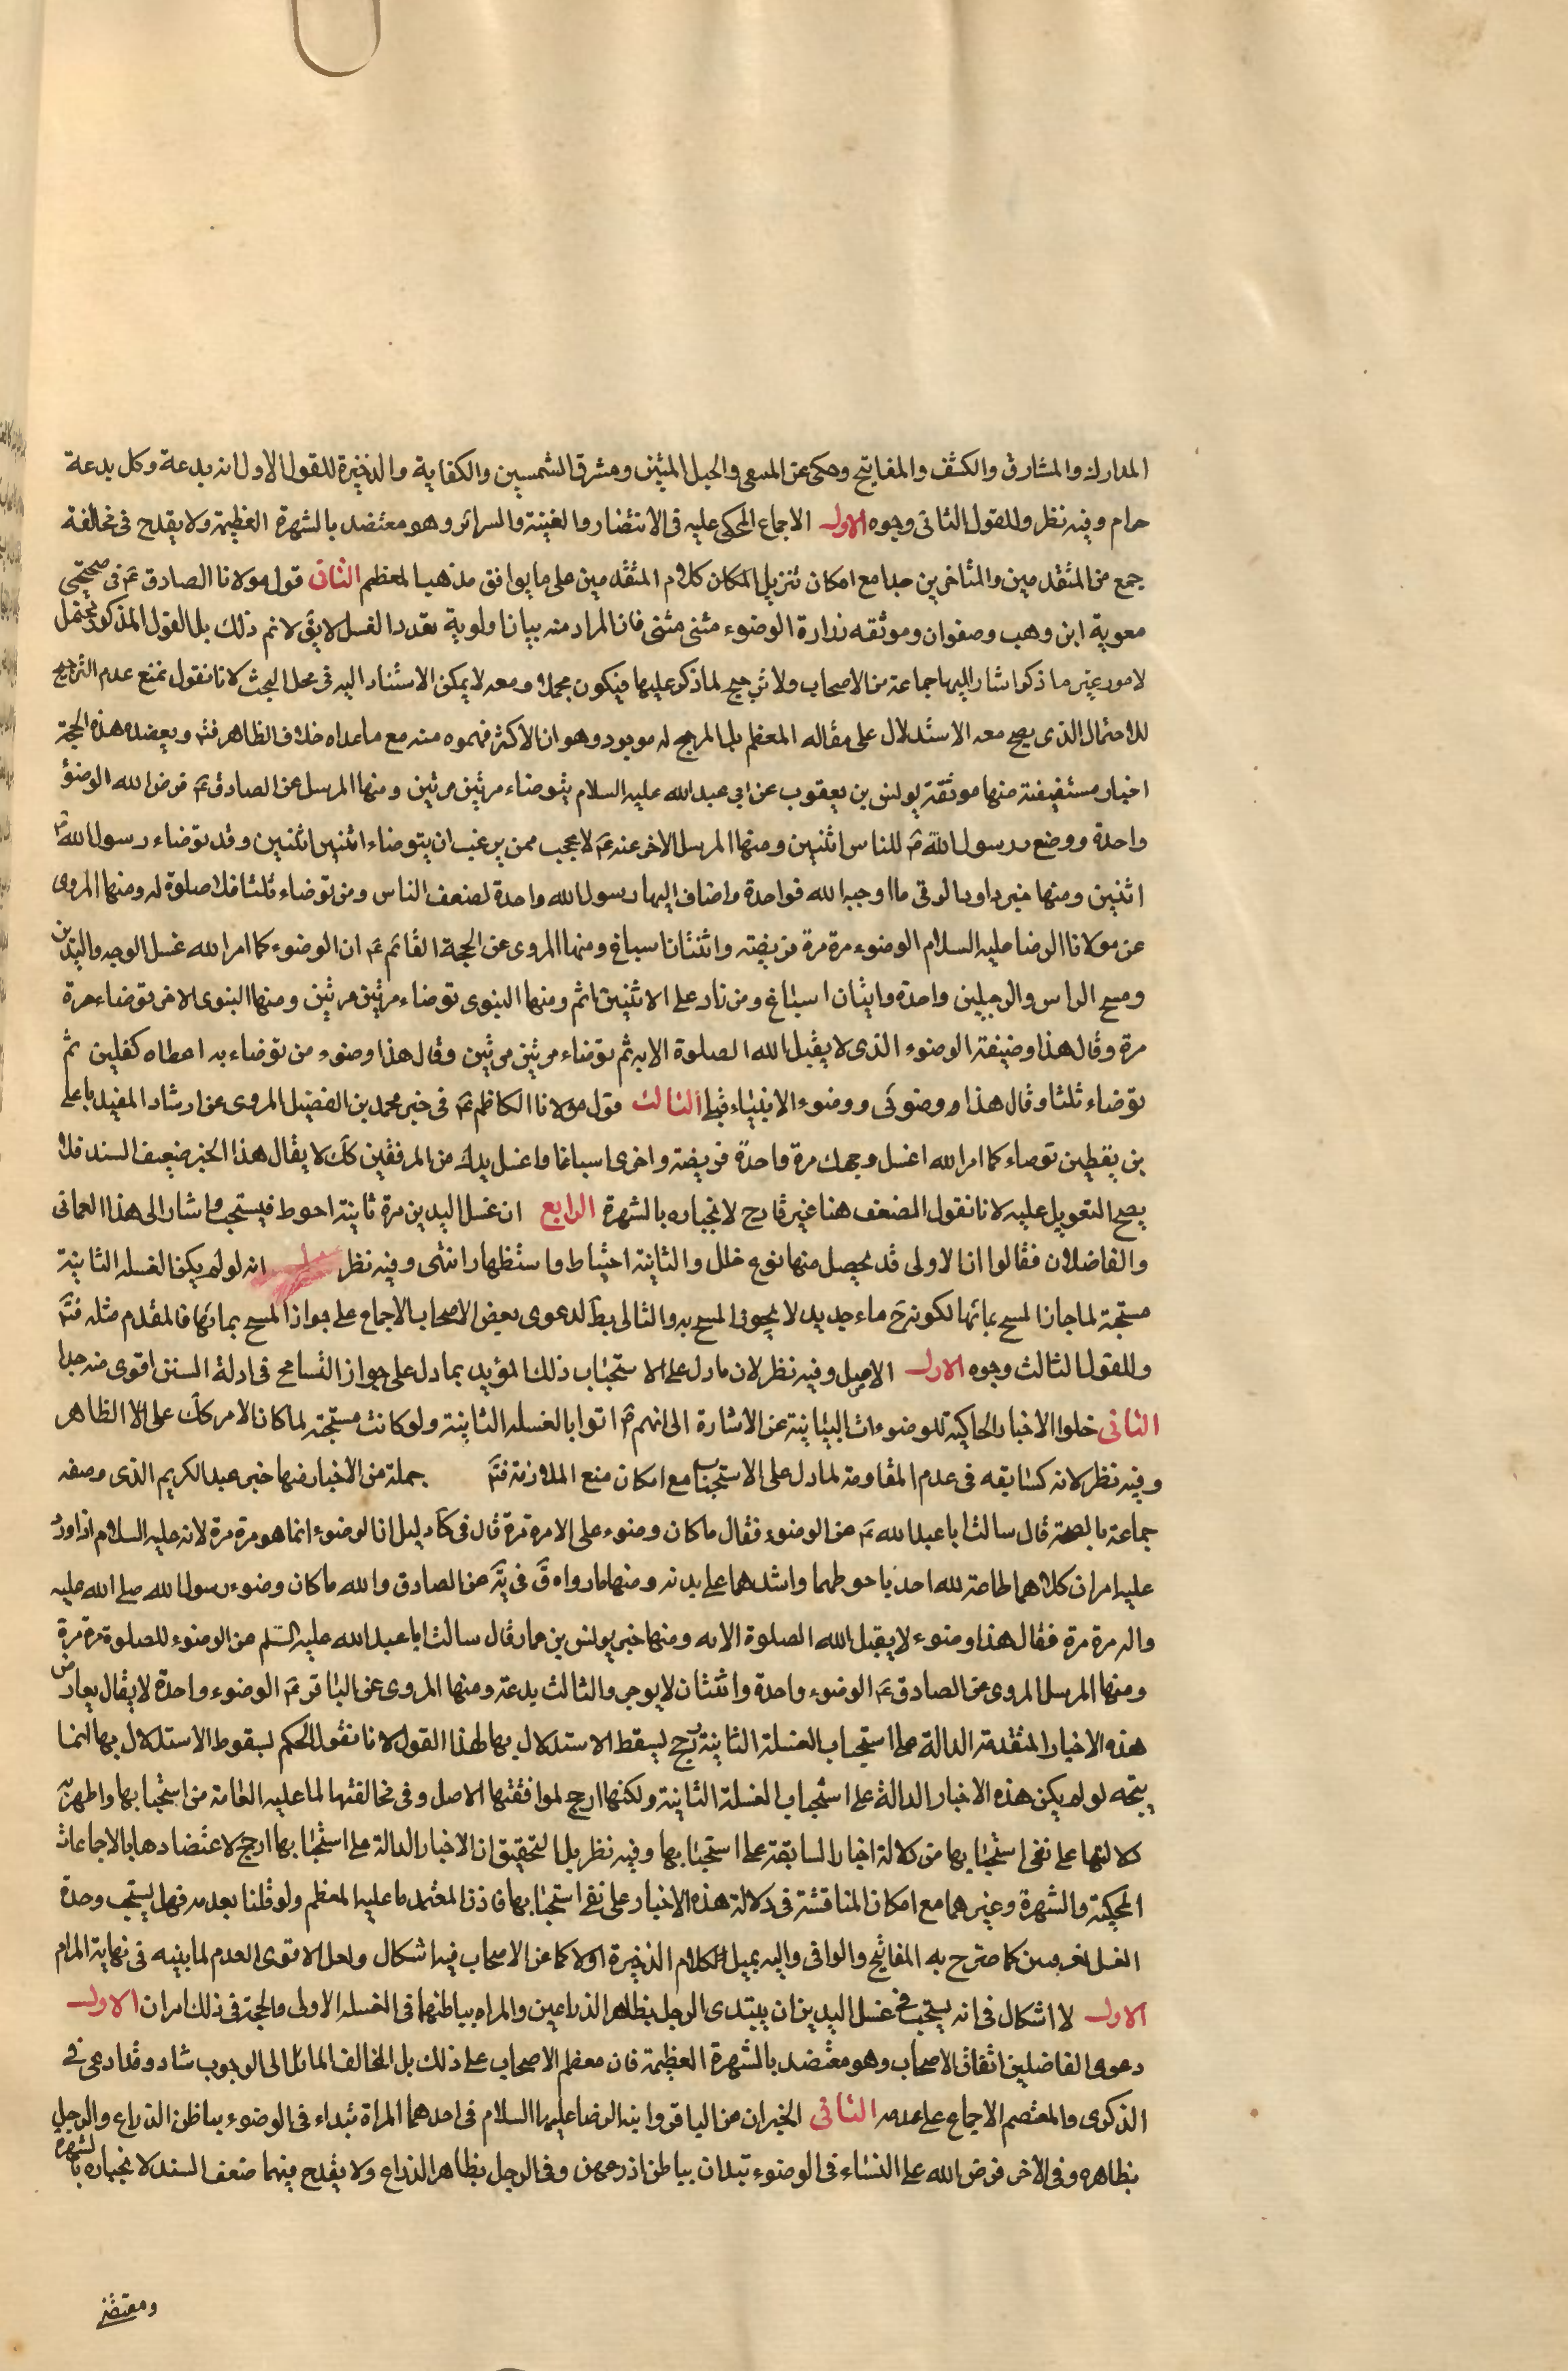 المدارك والمشارق والكشف والمفاتيح وحكى عن المنتهى والحبل المتين ومشرق الشمسين والكفاية والذخيرة للقول الاول انه بدعة وكل بدعة
حرام وفيه نظر وللقول الثانى وجوه الاول الاجماع المحكى عليه فى الانتصار والغنية والسرائر وهو معتضد بالشهرة العظيمة ولا يقدح فى مخالفة
جمع من المتقدمين والمتاخرين جدا مع امكان تنزيل المكان كلام المتقدمين على ما يوافق مذهب المعظم الثانى قول مولانا الصادق ع فى صحيحتى
معوية ابن وهب وصفوان وموثقه زرارة الوضوء مثنى مثنى فان المراد منه بيانا ولوية تعدد الغسل لا يق لا نم ذلك بل القول المذكور يحتمل
لامور غير ما ذكر اشار اليها جماعة من الاصحاب ولا ترجيح لما ذكر عليها فيكون مجملا ومعه لا يمكن الاستناد اليه فى محل البحث لانا نقول نمنع عدم الترجيح
للاحتمال الذى يصح معه الاستدلال على مقاله المعظم بل المرجح له موجود وهو ان الاكثر فهموه منه مع ما عداه خلاف الظاهر فتم ويعضده هذه الحجة
اخبار مستفيضة منها موثقة يونس بن يعقوب عن ابى عبد الله عليه السلام يتوضاء مرتين مرتين ومنها المرسل عن الصادق ع فرض الله الوضوء
واحدة ووضع رسول الله ص للناس اثنتين ومنها المرسل الاخر عنه ع لاعجب ممن يرغب ان يتوضاء اثنتين اثنتين وقد توضاء رسول الله ص
اثنين ومنها خبر داود الرقى ما اوجبه الله فواحدة واضاف اليها رسول الله واحدة لضعف الناس ومن توضاء ثلثا فلا صلوة له ومنها المروى
عن مولانا الرضا عليه السلام الوضوء مرة مرة فريضة واثنتان اسباغ ومنها المروى عن الحجة القائم ع ان الوضوء كما امر الله غسل الوجه واليدين
ومسح الراس والرجلين واحدة واثنان اسباغ ومن زاد على الاثنين اثم ومنها النبوى توضاء مرتين مرتين ومنها النبوى الاخر توضاء مرة
مرة وقال هذا وضيفة الوضوء الذى لا يقبل الله الصلوة الا به ثم توضاء مرتين مرتين وقال هذا وضوء من توضاء به اعطاه كفلين ثم
توضاء ثلثا وقال هذا ووضوئى ووضوء الانبياء قبلى الثالث قول مولانا الكاظم ع فى خبر محمد بن الفضيل المروى عن ارشاد المفيد يا على
بن يقطين توضاء كما امر الله اغسل وجهك مرة واحدة فريضة واخرى اسباغا واغسل يديك من المرفقين كك لا يقال هذا الخبر ضعيف السند فلا
يصح التعويل عليه لانا نقول الضعف هنا غير قادح لانجباره بالشهرة الرابع ان غسل اليدين مرة ثانية احوط فيستحب واشار الى هذا العمانى
والفاضلان فقالوا ان الاولى قد يحصل منها نوع خلل والثانية احتياط واستظهار انتهى وفيه نظر انه لو لم يكن الغسلة الثانية
مستحبة لما جاز المسح بمائها لكونه ح ماء جديد لا يجوز المسح به والتالى بط لدعوى بعض الاصحاب الاجماع على جواز المسح بمائها فالمقدم مثله فتم
وللقول الثالث وجوه الاول الاصل وفيه نظر لان ما دل على الاستحباب ذلك المؤيد بما دل على جواز التسامح فى ادلة السنن اقوى منه جدا
الثانى خلوا الاخبار الحاكية للوضوءات البيانية عن الاشارة الى انهم ع اتوا بالغسلة الثانية ولو كانت مستحبة لما كان الامر كك على الا الظاهر
وفيه نظر لانه كسابقه فى عدم المقاومة لما دل على الاستحباب مع امكان منع الملازمة فتم جملة من الاخبار منها خبر عبد الكريم الذى وصفه
جماعة بالصحة قال سالت ابا عبد الله ع عن الوضوء فقال ما كان وضوء على الا مرة مرة قال فى كا دليل ان الوضوء انما هو مرة مرة لانه عليه السلام اذا ورد
عليه امران كلاهما طاعة لله اخذ باحوطهما واشدهما على بدنه ومنها ما رواه ق فى يه عن الصادق والله ما كان وضوء رسول الله صلى الله عليه
واله مرة مرة فقال هذا وضوء لا يقبل الله الصلوة الا به ومنها خبر يونس بن عمار قال سالت ابا عبد الله عليه السلم عن الوضوء للصلوة مرة مرة
ومنها المرسل المروى عن الصادق ع الوضوء واحدة واثنتان لا يوجر والثالث بدعة ومنها المروى عن الباقر ع الوضوء واحدة لا يقال يعارض
هذه الاخبار المتقدمة الدالة على استحباب الغسلة الثانية ح يسقط الاستدلال بها لهذا القول لانا نقول الحكم لسقوط الاستدلال بها انما
يتجه لو لم يكن هذه الاخبار الدالة على استحباب الغسلة الثانية ولكنها ارجح لموافقتها الاصل وفى مخالفتها لما عليه العامة من استحبابها واظهرية
دلالتها على نفى استحبابها من دلالة اخبار السابقة على استحبابها وفيه نظر بل التحقيق ان الاخبار الدالة على استحبابها ارجح لاعتضادها بالاجماعات
المحكية والشهرة وغيرهما مع امكان المناقشة فى دلالة هذه الاخبار على نفى استحبابها فاذن المعتمد ما عليه المعظم ولو قلنا بعدمه فهل يستحب وحدة
الغسل كما صرح به المفاتيح والوافى واليه يميل كلام الذخيرة اولا كما عن الاصحاب فيه اشكال ولعل الاقوى العدم لما بينه فى نهاية المرام
الاول لا اشكال فى انه يستحب فى غسل اليدين ان يبتدى الرجل بظاهر الذراعين والمراه بباطنهما فى الغسلة الاولى والحجة فى ذلك امران الاول
دعوى الفاضلين اتفاق الاصحاب وهو معتضد بالشهرة العظيمة فان معظم الاصحاب على ذلك بل المخالف المائل الى الوجوب شاد وقد ادعى فى
الذكرى والمعتصم الاجماع على عدمه الثانى الخبران عن الباقر وابنه الرضا عليهما السلام فى احدهما المراة تبداء فى الوضوء بباطن الذراع والرجل
بظاهره وفى الاخر فرض الله على النساء فى الوضوء تبدان بباطن اذرعهن وفى الرجل بظاهر الذراع ولا يقدح فيهما ضعف السند لانجباره بالشهرة